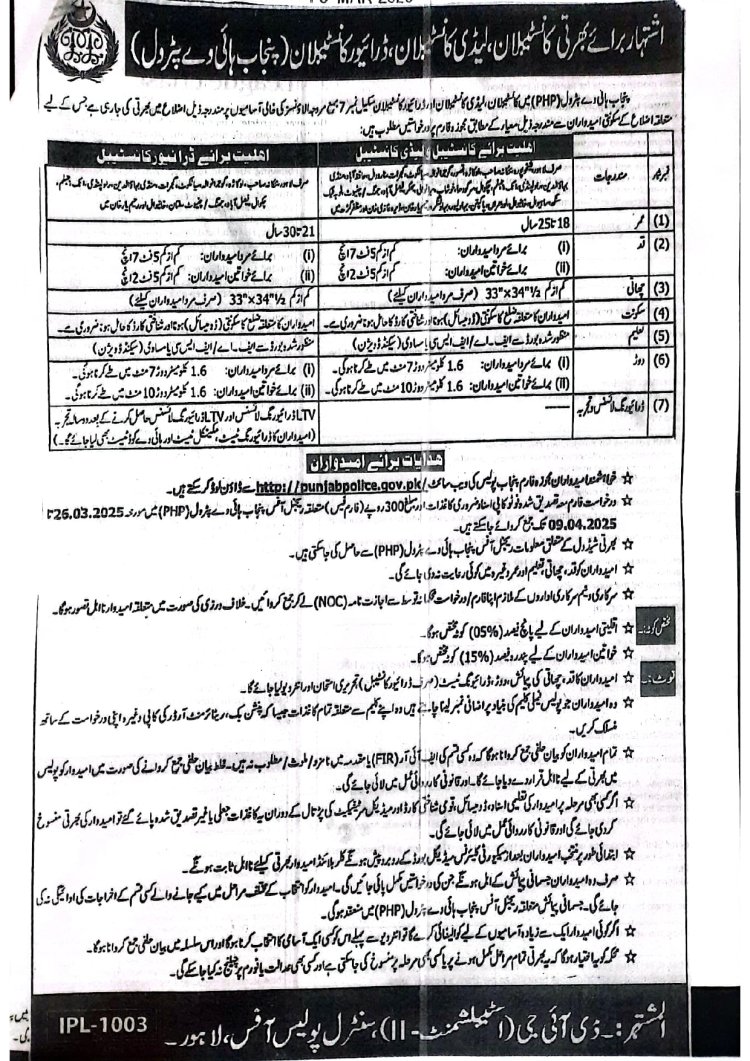 MAR 2025
اشتہار برائے بھرتی کانسٹیبلان، لیڈی کانسٹیبلان، ڈرائیور کانسٹیبلان (پنجاب ہائی وے پٹرول)
پنجاب ہائی وے پٹرول (PHP) میں کانسٹیبلان، لیڈی کانسٹیبلان اور ڈرائیور کانسٹیبلان سکیل نمبر 7 بمع مروجہ الاؤنسز کی خالی آسامیوں پر مندرجہ ذیل اضلاع میں بھرتی کی جاری ہے جس کے لیے
متعلقہ اضلاع کے سکونتی امیدواران سے مندرجہ ذیل معیار کے مطابق مجوزہ فارم پر درخواستیں مطلوب ہیں:
نمبر شمار مندرجات اہلیت برائے کانسٹیبل و لیڈی کانسٹیبل اہلیت برائے ڈرائیور کانسٹیبل
(1) عمر 18 تا 25 سال 21 تا 30 سال
(2) قد (i) برائے مرد امیدواران: کم از کم 5 فٹ 7 انچ (i) برائے مرد امیدواران: کم از کم 5 فٹ 7 انچ
(ii) برائے خواتین امیدواران: کم از کم 5 فٹ 2 انچ (ii) برائے خواتین امیدواران: کم از کم 5 فٹ 2 انچ
(3) چھاتی کم از کم 33"x34"½ (صرف مرد امیدواران کیلئے) کم از کم 33"x34"½ (صرف مرد امیدواران کیلئے)
(4) سکونت امیدواران کا متعلقہ ضلع کا سکونتی (ڈومیسائل) ہونا اور شناختی کارڈ کا حامل ہونا ضروری ہے۔ امیدواران کا متعلقہ ضلع کا سکونتی (ڈومیسائل) ہونا اور شناختی کارڈ کا حامل ہونا ضروری ہے۔
(5) تعلیم منظور شدہ بورڈ سے ایف۔اے/ایف ایس سی یا مساوی (سیکنڈ ڈویژن) منظور شدہ بورڈ سے ایف۔اے/ایف ایس سی یا مساوی (سیکنڈ ڈویژن)
(6) دوڑ (i) برائے مرد امیدواران: 1.6 کلومیٹر دوڑ 7 منٹ میں طے کرنا ہوگی۔ (i) برائے مرد امیدواران: 1.6 کلومیٹر دوڑ 7 منٹ میں طے کرنا ہوگی۔
(ii) برائے خواتین امیدواران: 1.6 کلومیٹر دوڑ 10 منٹ میں طے کرنا ہوگی۔ (ii) برائے خواتین امیدواران: 1.6 کلومیٹر دوڑ 10 منٹ میں طے کرنا ہوگی۔
(7) ڈرائیورنگ لائسنس و تجربہ ------ LTV ڈرائیورنگ لائسنس اور LTV ڈرائیورنگ لائسنس حاصل کرنے کے بعد دو سالہ تجربہ
(امیدواران کا ڈرائیونگ ٹیسٹ، مکینیکل ٹیسٹ اور ہائی وے کوڈ ٹیسٹ بھی لیا جائے گا۔)
ھدایات برائے امیدواران
☆ خواہشمند امیدواران مجوزہ فارم پنجاب پولیس کی ویب سائٹ http://punjabpolice.gov.pk/ سے ڈاؤن لوڈ کر سکتے ہیں۔
☆ درخواست فارم معہ تصدیق شدہ فوٹو کاپی اسناد و ضروری کاغذات اور مبلغ 300 روپے (فارم فیس) متعلقہ ریجنل آفس پنجاب ہائی وے پٹرول (PHP) میں مورخہ 26.03.2025 تا
09.04.2025 تک جمع کروائے جا سکتے ہیں۔
☆ بھرتی شیڈول کے متعلق معلومات ریجنل آفس پنجاب ہائی وے پٹرول (PHP) سے حاصل کی جا سکتی ہیں۔
☆ امیدواران کو قد، چھاتی، تعلیم اور عمر وغیرہ میں کوئی رعایت نہ دی جائے گی۔
☆ سرکاری و نیم سرکاری اداروں کے ملازم اپنا فارم/درخواست محکمانہ توسط سے اجازت نامہ (NOC) لے کر جمع کروائیں۔ خلاف ورزی کی صورت میں متعلقہ امیدوار نااہل تصور ہوگا۔
مختص کوٹہ:۔ ☆ اقلیتی امیدواران کے لیے پانچ فیصد (05%) کوٹہ مختص ہوگا۔
☆ خواتین امیدواران کے لیے پندرہ فیصد (15%) کوٹہ مختص ہوگا۔
نوٹ:۔ ☆ امیدواران کا قد، چھاتی کی پیمائش، دوڑ، ڈرائیونگ ٹیسٹ (صرف ڈرائیور کانسٹیبل) تحریری امتحان اور انٹرویو لیا جائے گا۔
☆ وہ امیدواران جو پولیس فیملی کلیم کی بنیاد پر اضافی نمبر لینا چاہتے ہیں وہ اپنے کلیم سے متعلقہ تمام کاغذات جیسا کہ پنشن بک، ریٹائرمنٹ آرڈر کی کاپی وغیرہ اپنی درخواست کے ساتھ
منسلک کریں۔
☆ تمام امیدواران کو بیان حلفی جمع کروانا ہوگا کہ وہ کسی قسم کی ایف آئی آر (FIR) یا مقدمہ میں نامزد/ملوث/مطلوب نہ ہیں۔ غلط بیان حلفی جمع کروانے کی صورت میں امیدوار کو پولیس
میں بھرتی کے لیے نااہل قرار دے دیا جائے گا۔ اور قانونی کارروائی عمل میں لائی جائے گی۔
☆ اگر کسی بھی مرحلہ پر امیدوار کی تعلیمی اسناد، ڈومیسائل، قومی شناختی کارڈ اور میڈیکل سرٹیفکیٹ کی پڑتال کے دوران یہ کاغذات جعلی یا غیر تصدیق شدہ پائے گئے تو امیدوار کی بھرتی منسوخ
کر دی جائے گی اور قانونی کارروائی عمل میں لائی جائے گی۔
☆ ابتدائی طور پر منتخب امیدواران بعد از سیکیورٹی کلیئرنس میڈیکل بورڈ کے روبرو پیش ہونگے کلر بلائنڈ امیدوار بھرتی کیلئے نااہل ثابت ہونگے۔
☆ صرف وہ امیدواران جسمانی پیمائش کے اہل ہونگے جن کی درخواستیں مکمل پائی جائیں گی۔ امیدوار کو انتخاب کے مختلف مراحل میں کیے جانے والے کسی قسم کے اخراجات کی ادائیگی نہ کی
جائے گی۔ جسمانی پیمائش متعلقہ ریجنل آفس پنجاب ہائی وے پٹرول (PHP) میں منعقد ہوگی۔
☆ اگر کوئی امیدوار ایک سے زیادہ آسامیوں کے لیے کوالیفائی کرے گا تو انٹرویو سے پہلے اس کو کسی ایک آسامی کا انتخاب کرنا ہوگا اور اس سلسلہ میں بیان حلفی جمع کروانا ہوگا۔
☆ محکمہ کو یہ اختیار ہوگا کہ یہ بھرتی تمام مراحل مکمل ہونے پر یا کسی بھی مرحلہ پر منسوخ کی جا سکتی ہے اور کسی بھی عدالت یا فورم پر چیلنج نہ کیا جا سکے گی۔
المشتہر:۔ ڈی آئی جی (اسٹیبلشمنٹ-II)، سنٹرل پولیس آفس، لاہور۔
IPL-1003